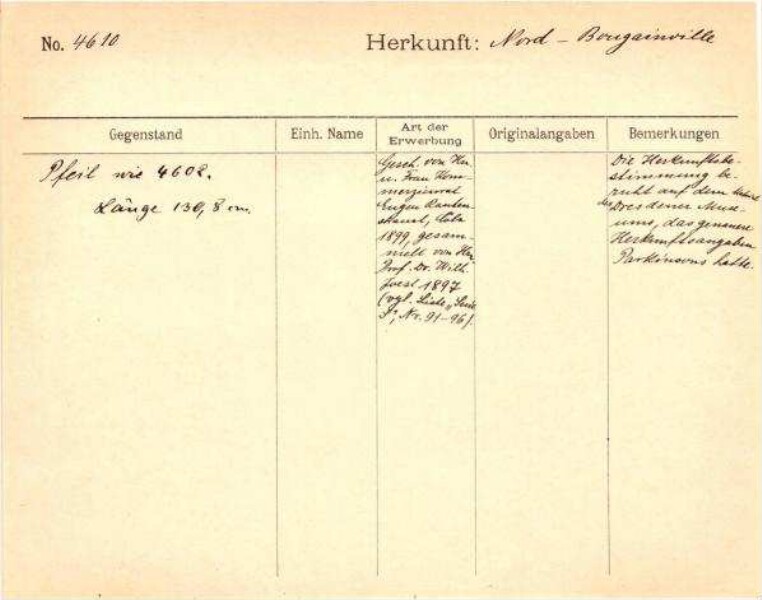 No. 4610
Herkunft: Nord - Bougainville
Gegenstand
Einh. Name
Art der
Erwerbung
Originalangaben
Bemerkungen
Pfeil wie 4602.
Länge 130,8 cm.
Gesch. von Herrn
u. Frau Kom-
merzienrat
Eugen Rauten-
strauch, Cöln
1899, gesam-
melt von Herrn
Prof. Dr. Wilh.
Joest 1897
(vgl. Liste
Nr. 91-96).
Die Herkunftsbe-
stimmung be-
ruht auf dem
des Dresdener Muse-
ums, das genauere
Herkunftsangaben
Parkinsons hatte.